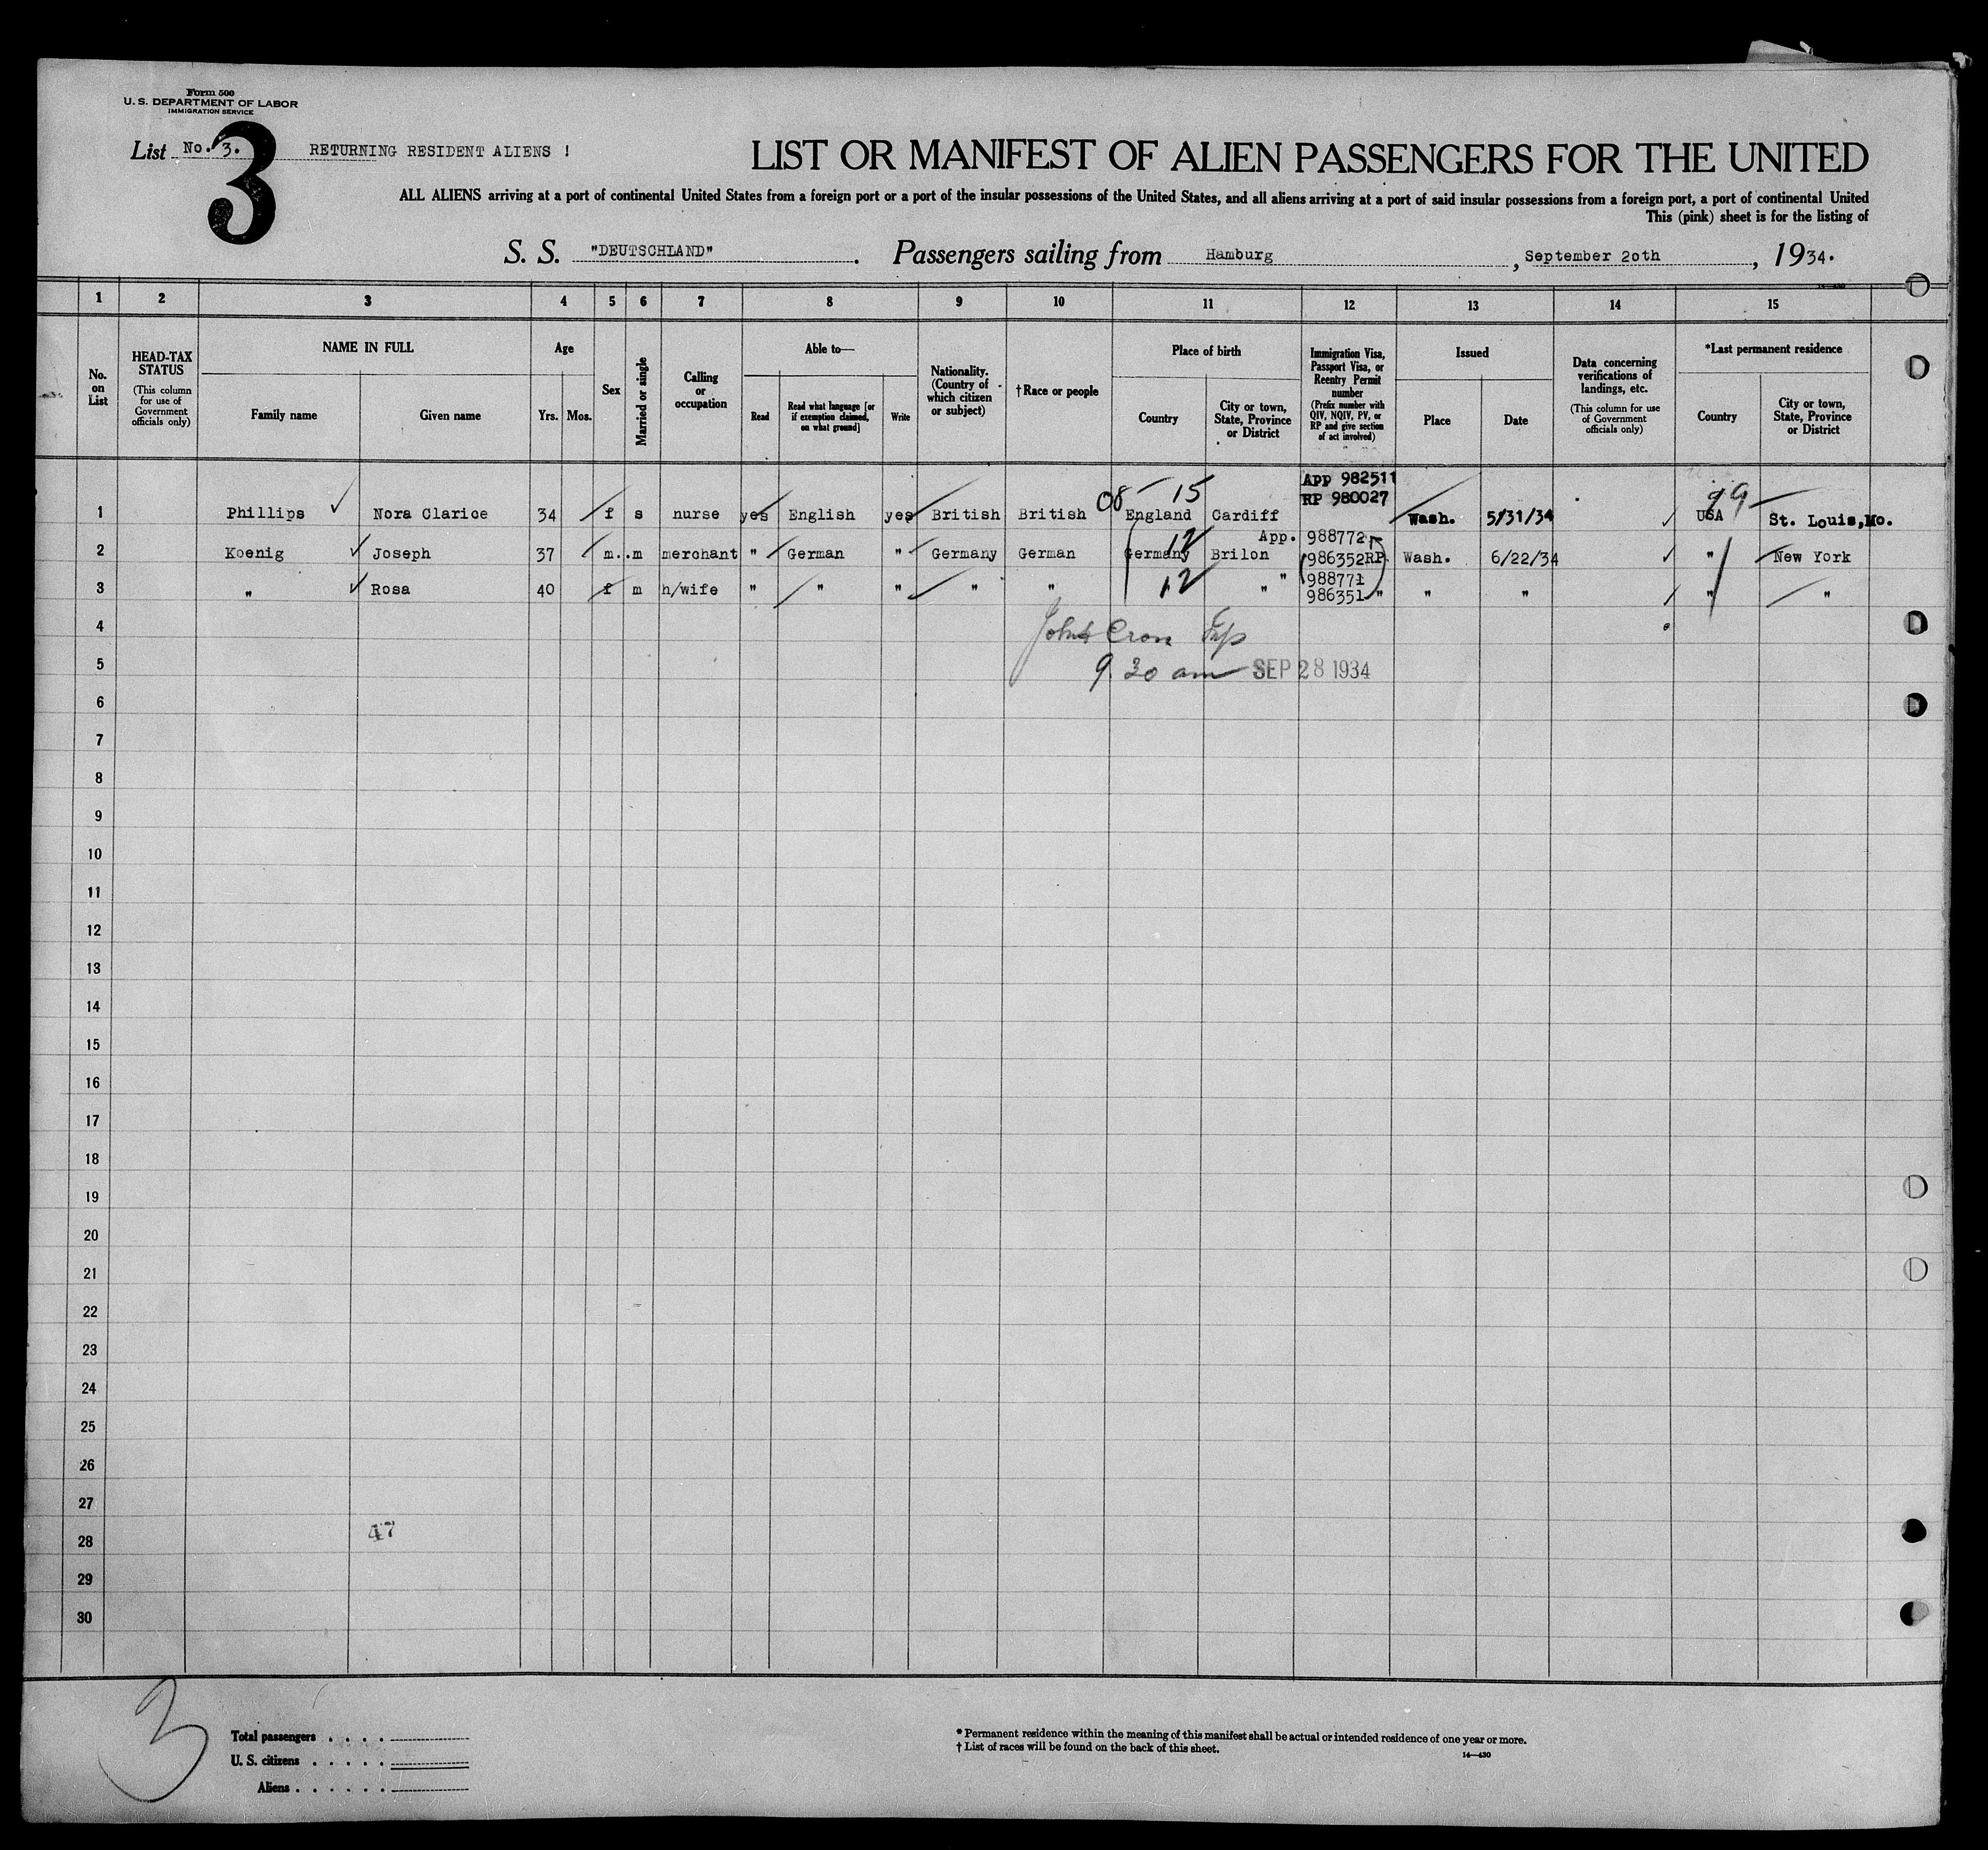 Form 500
U. S. DEPARTMENT OF LABOR
IMMIGRATION SERVICE
List No. 3.
3
RETURNING RESIDENT ALIENS !
LIST OR MANIFEST OF ALIEN PASSENGERS FOR THE UNITED
ALL ALIENS arriving at a port of continental United States from a foreign port or a port of the insular possessions of the United States, and all aliens arriving at a port of said insular possessions from a foreign port, a port of continental United
This (pink) sheet is for the listing of
S. S. "DEUTSCHLAND" . Passengers sailing from Hamburg , September 20th , 1934.
14—430
1 2 3 4 5 6 7 8 9 10 11 12 13 14 15
No. on List
HEAD-TAX STATUS
(This column for use of Government officials only)
NAME IN FULL
Family name Given name
Age
Yrs. Mos.
Sex
Married or single
Calling or occupation
Able to—
Read Read what language [or if exemption claimed, on what ground] Write
Nationality. (Country of which citizen or subject)
† Race or people
Place of birth
Country City or town, State, Province or District
Immigration Visa, Passport Visa, or Reentry Permit number
(Prefix number with QIV, NQIV, PV, or RP and give section of act involved)
Issued
Place Date
Data concerning verifications of landings, etc.
(This column for use of Government officials only)
*Last permanent residence
Country City or town, State, Province or District
App 982511
08 — 15 99
1 Phillips Nora Clarice 34 f s nurse yes English yes British British England Cardiff RP 980027 Wash. 5/31/34 USA St. Louis,Mo.
App. 988772
12
2 Koenig Joseph 37 m. .m merchant " German " Germany German Germany Brilon 986352RP Wash. 6/22/34 " New York
" 988771
12
3 " Rosa 40 f m h/wife " " " " " " 986351 " " " " "
4 John Cron
5 9.30 am SEP 28 1934
6
7
8
9
10
11
12
13
14
15
16
17
18
19
20
21
22
23
24
25
26
27
47
28
29
30
3
Total passengers . . . .
U. S. citizens . . . . .
Aliens . . . . . .
* Permanent residence within the meaning of this manifest shall be actual or intended residence of one year or more.
† List of races will be found on the back of this sheet.
14—430